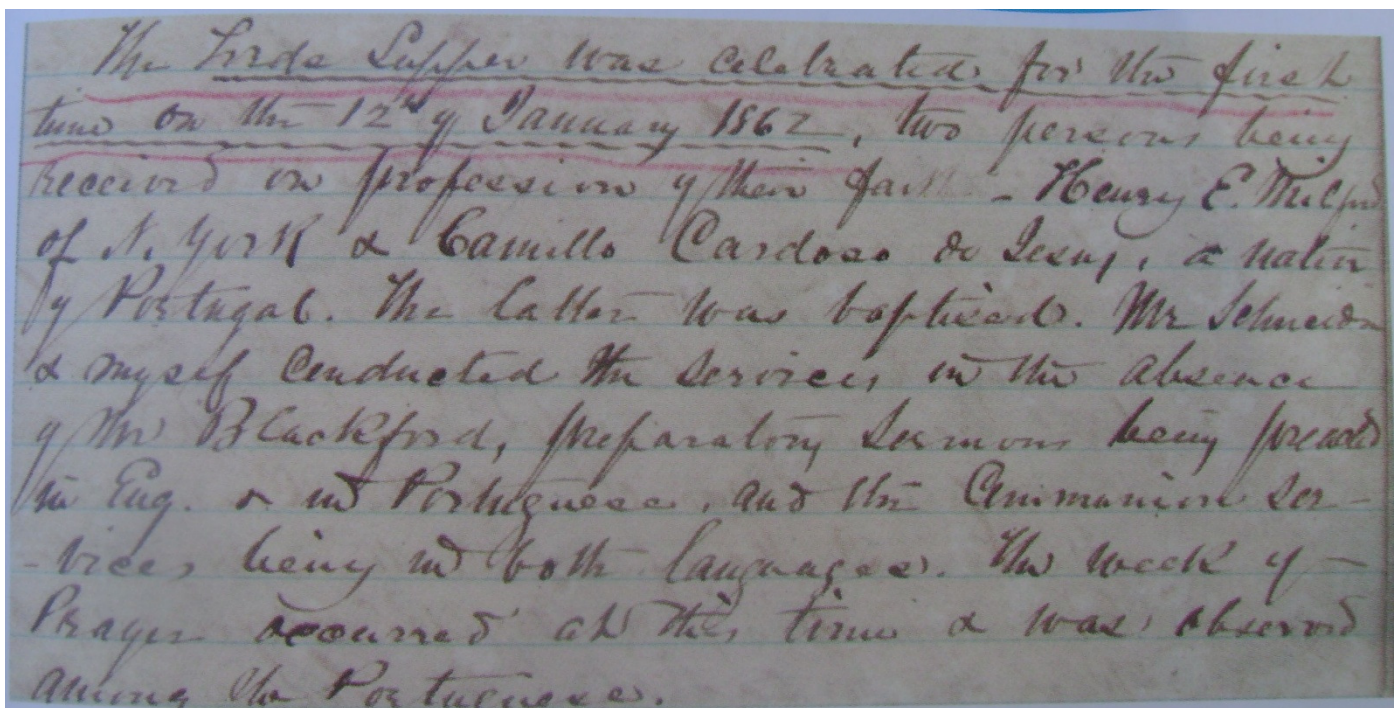 The Lords Supper was celebrated for the first
time on the 12th of January 1862, two persons being
received on profession of their faith - Henry E. Milford
of N. York & Camillo Cardoso de Jesus, a native
of Portugal. The latter was baptised. Mr Schneider
& myself conducted the services in the absence
of Mr Blackford, preparatory sermons being preached
in Eng. & in Portuguese, and the Communion ser-
-vices being in both languages. The week of
Prayer occurred at this time & was observed
among the Portuguese.